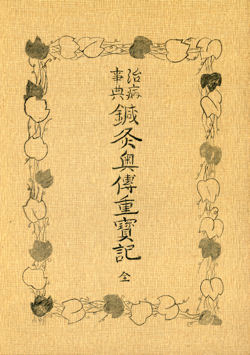 治病
事典
鍼灸奥傳重寶記
全